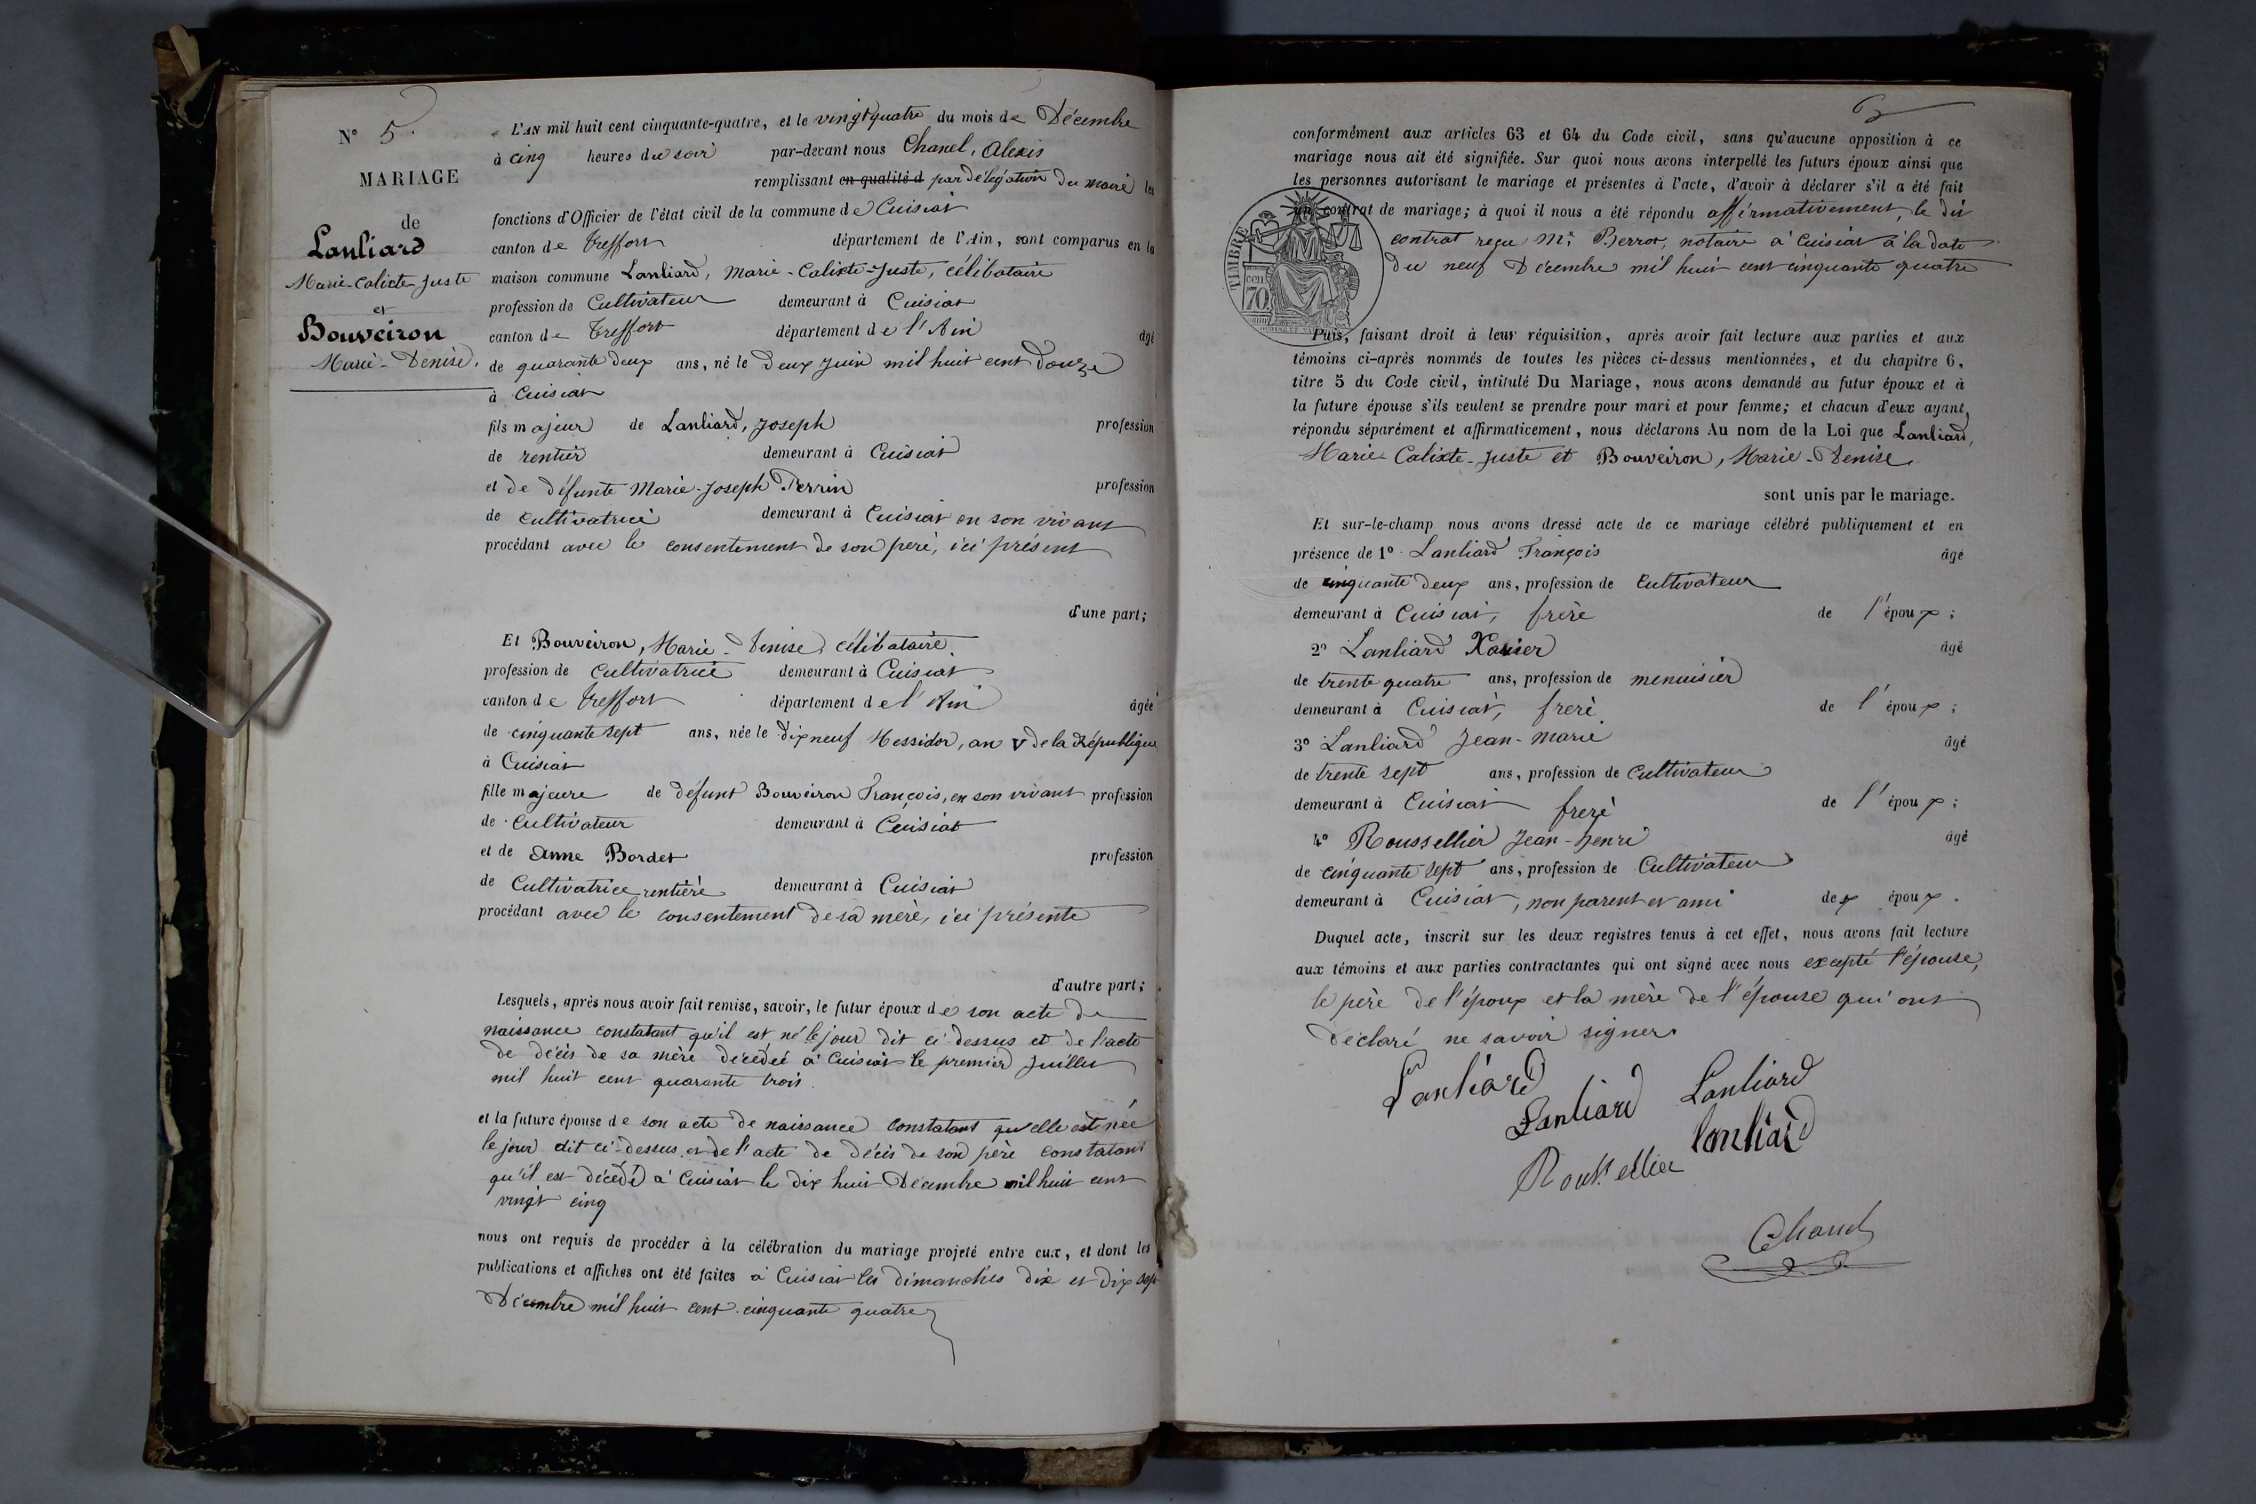 N° 5.
MARIAGE
de
Lanliard
Marie-Calixte-Juste
et
Bouveiron
Marie-Denise.
L'AN mil huit cent cinquante-quatre, et le vingt quatre du mois de Décembre
à cinq heures du soir par-devant nous Chanel, Alexis
remplissant en qualité d par délégation du maire les
fonctions d'Officier de l'état civil de la commune de Cuisiat
canton de Treffort département de l'Ain, sont comparus en la
maison commune Lanliard, Marie-Calixte-Juste, célibataire
profession de Cultivateur demeurant à Cuisiat
canton de Treffort département de l'Ain âgé
de quarante deux ans, né le deux Juin mil huit cent douze
à Cuisiat
fils majeur de Lanliard, Joseph profession
de rentier demeurant à Cuisiat
et de défunte Marie-Joseph Perrin profession
de cultivatrice demeurant à Cuisiat en son vivant
procédant avec le consentement de son père, ici présent
d'une part;
Et Bouveiron, Marie-Denise, célibataire.
profession de cultivatrice demeurant à Cuisiat
canton de Treffort département de l'Ain âgée
de cinquante sept ans, née le dix neuf Messidor, an V de la République
à Cuisiat
fille majeure de défunt Bouveiron François, en son vivant profession
de Cultivateur demeurant à Cuisiat
et de Anne Bordet profession
de Cultivatrice rentière demeurant à Cuisiat
procédant avec le consentement de sa mère, ici présente
d'autre part;
Lesquels, après nous avoir fait remise, savoir, le futur époux de son acte de
naissance constatant qu'il est né le jour dit ci dessus et de l'acte
de décès de sa mère décédée à Cuisiat le premier Juillet
mil huit cent quarante trois.
et la future épouse de son acte de naissance constatant qu'elle est née
le jour dit ci-dessus et de l'acte de décès de son père constatant
qu'il est décédé à Cuisiat le dix huit Décembre mil huit cent
vingt cinq
nous ont requis de procéder à la célébration du mariage projeté entre eux, et dont les
publications et affiches ont été faites à Cuisiat les dimanches dix et dix sept
Décembre mil huit cent cinquante quatre
conformément aux articles 63 et 64 du Code civil, sans qu'aucune opposition à ce
mariage nous ait été signifiée. Sur quoi nous avons interpellé les futurs époux ainsi que
les personnes autorisant le mariage et présentes à l'acte, d'avoir à déclarer s'il a été fait
un contrat de mariage; à quoi il nous a été répondu affirmativement, le dit
contrat reçu Me Perrot, notaire à Cuisiat à la date
du neuf Décembre mil huit cent cinquante quatre
TIMBRE
cen
70
Puis, faisant droit à leur réquisition, après avoir fait lecture aux parties et aux
témoins ci-après nommés de toutes les pièces ci-dessus mentionnées, et du chapitre 6,
titre 5 du Code civil, intitulé Du Mariage, nous avons demandé au futur époux et à
la future épouse s'ils veulent se prendre pour mari et pour femme; et chacun d'eux ayant
répondu séparément et affirmativement, nous déclarons Au nom de la Loi que Lanliard,
Marie Calixte-Juste et Bouveiron, Marie-Denise
sont unis par le mariage.
Et sur-le-champ nous avons dressé acte de ce mariage célébré publiquement et en
présence de 1° Lanliard François âgé
de cinquante deux ans, profession de cultivateur
demeurant à Cuisiat, frère de l'époux;
2° Lanliard Xavier âgé
de trente quatre ans, profession de menuisier
demeurant à Cuisiat, frère de l'époux;
3° Lanliard Jean-Marie âgé
de trente sept ans, profession de Cultivateur
demeurant à Cuisiat frère de l'époux;
4° Roussellier Jean-henri âgé
de cinquante sept ans, profession de Cultivateur
demeurant à Cuisiat, non parent et ami des époux.
Duquel acte, inscrit sur les deux registres tenus à cet effet, nous avons fait lecture
aux témoins et aux parties contractantes qui ont signé avec nous excepté l'épouse,
le père de l'époux et la mère de l'épouse qui ont
déclaré ne savoir signer.
Lanliard
Lanliard Lanliard
Lanliard
Roussellier
Chanel